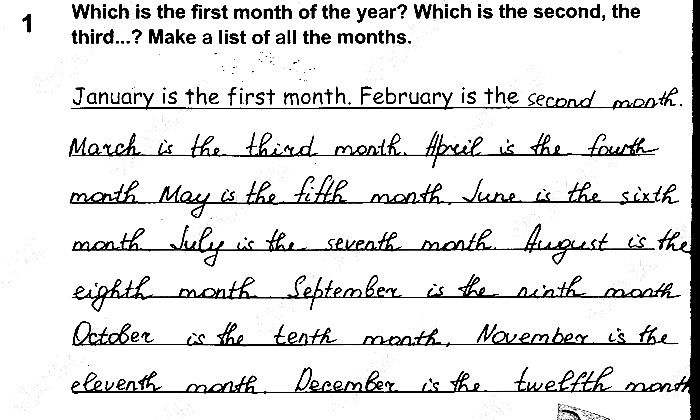 1 Which is the first month of the year? Which is the second, the
third...? Make a list of all the months.
January is the first month. February is the second month.
March is the third month. April is the fourth
month May is the fifth month. June is the sixth
month July is the seventh month. August is the
eighth month September is the ninth month
October is the tenth month. November is the
eleventh month. December is the twelfth month